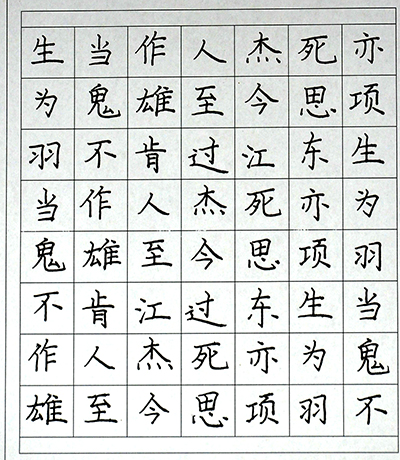 生当作人杰死亦
为鬼雄至今思项
羽不肯过江东生
当作人杰死亦为
鬼雄至今思项羽
不肯江过东生当
作人杰死亦为鬼
雄至今思项羽不